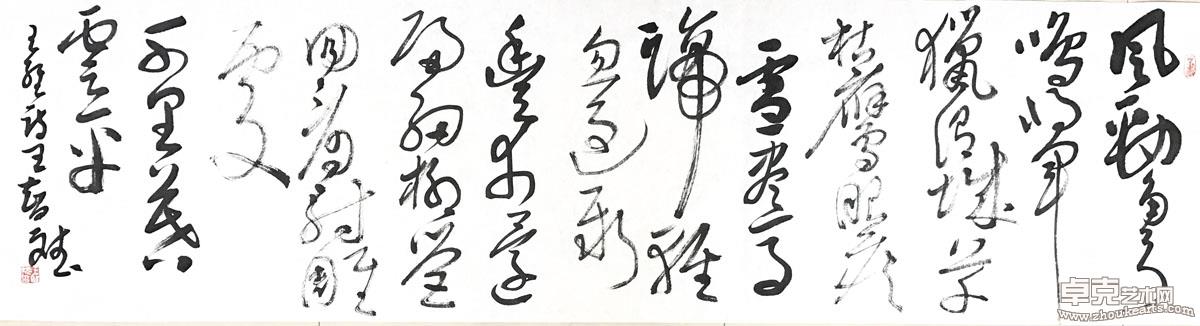 風勁角弓
鳴將軍
獵渭城草
枯鷹眼疾
雪盡馬
蹄輕
忽過新
豐市還
歸細柳營
回看射雕
處
千里暮
雲平
王維詩王
卓克艺术网
www.zhoukearts.com